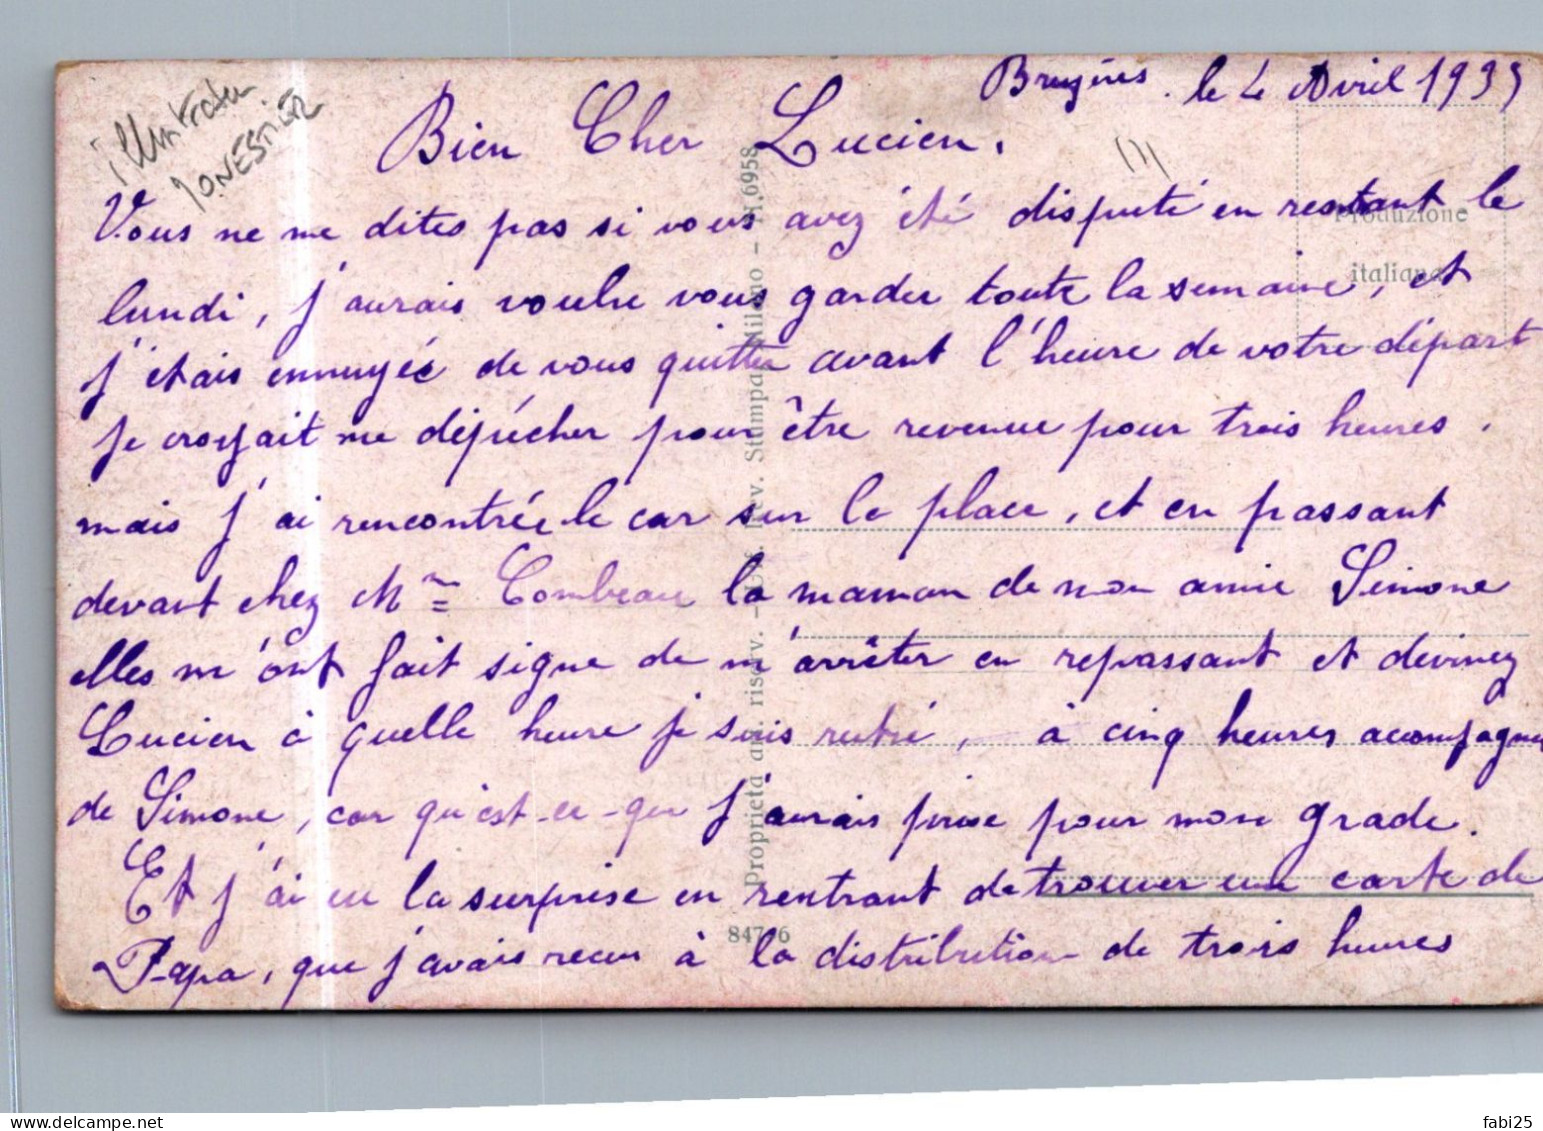 Bruyères. le 4 Avril 1935
illustrateur
JONESRIER
Bien Cher Lucien.
Vous ne me dites pas si vous avez été disputé en restant le
lundi, j'aurais voulu vous garder toute la semaine, et
j'étais ennuyée de vous quitter avant l'heure de votre départ
je croyait me dépécher pour être revenue pour trois heures.
mais j'ai rencontrée le car sur la place, et en passant
devant chez Mme Combeau la maman de mon amie Simone
elles m'ont fait signe de m'arrêter en repassant et devinez
Lucien à quelle heure je suis rentré, à cinq heures accompagnée
de Simone, car qu'est-ce-que j'aurais prise pour mon grade.
Et j'ai eu la surprise en rentrant de trouver une carte de
Papa, que j'avais recu à la distribution de trois heures
Produzione
italiana
Proprietà art. riserv. - Rev. Stampa Milano - N. 6958
fabi25